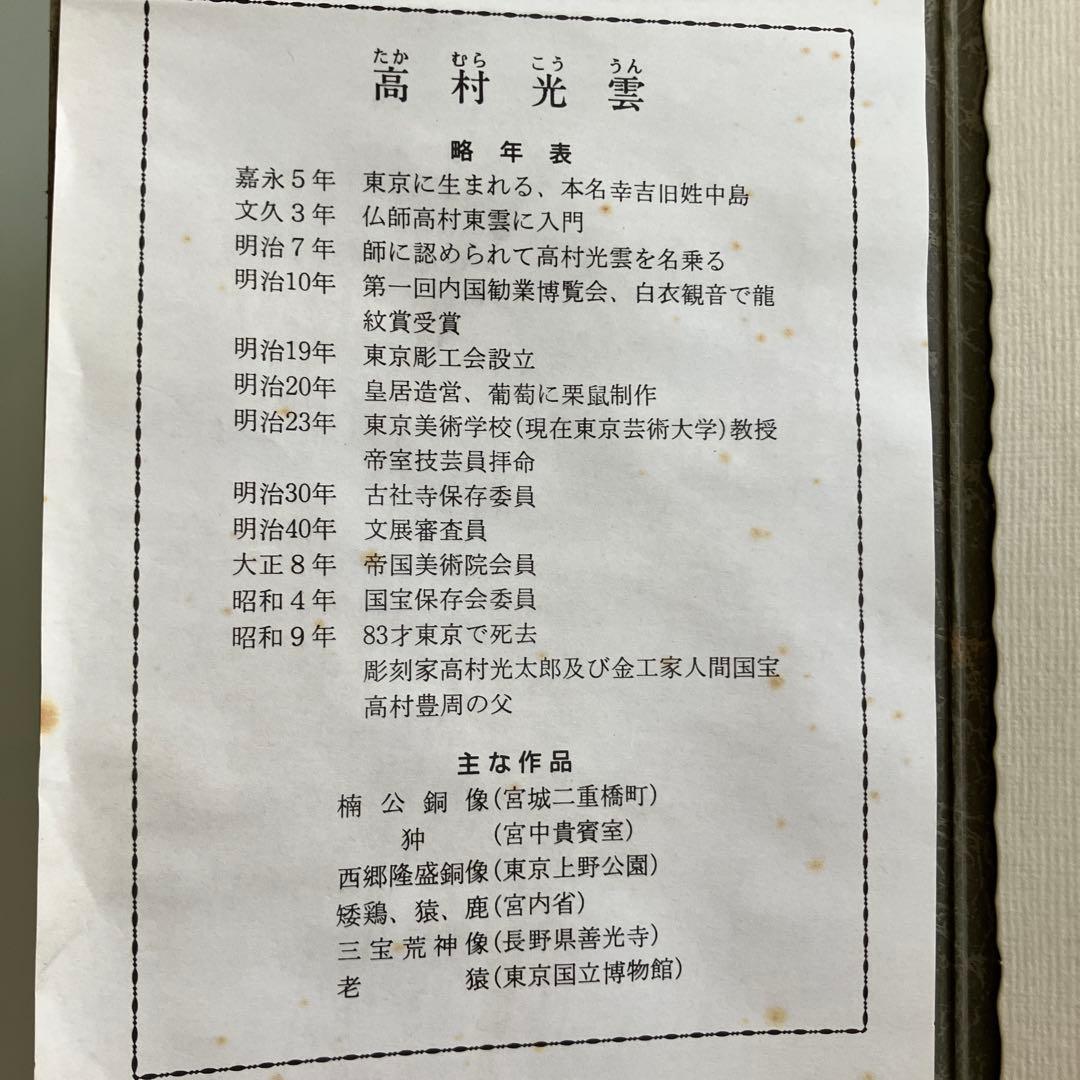 たか むら こう うん
高村光雲
略年表
嘉永5年 東京に生まれる、本名幸吉旧姓中島
文久3年 仏師高村東雲に入門
明治7年 師に認められて高村光雲を名乗る
明治10年 第一回内国勧業博覧会、白衣観音で龍
紋賞受賞
明治19年 東京彫工会設立
明治20年 皇居造営、葡萄に栗鼠制作
明治23年 東京美術学校(現在東京芸術大学)教授
帝室技芸員拝命
明治30年 古社寺保存委員
明治40年 文展審査員
大正8年 帝国美術院会員
昭和4年 国宝保存会委員
昭和9年 83才東京で死去
彫刻家高村光太郎及び金工家人間国宝
高村豊周の父
主な作品
楠公銅像(宮城二重橋町)
狆(宮中貴賓室)
西郷隆盛銅像(東京上野公園)
矮鶏、猿、鹿(宮内省)
三宝荒神像(長野県善光寺)
老猿(東京国立博物館)